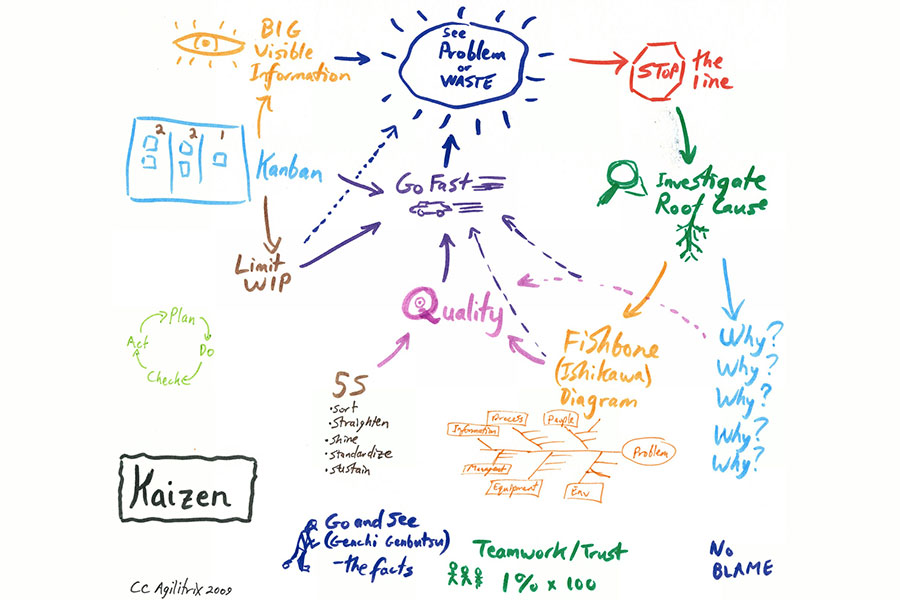 BIG
Visible
Information
See
Problem
or
WASTE
STOP
the
line
2 2 1
Kanban
Go Fast
Investigate
Root Cause
Limit
WIP
Quality
Plan
Do
Check
Act
5S
•sort
•straighten
•shine
•standardize
•sustain
Fishbone
(Ishikawa)
Diagram
Process
People
Information
Problem
Equipment
Env
Why?
Why?
Why?
Why?
Why?
Kaizen
Go and See
(Genchi Genbutsu)
-the facts
Teamwork/Trust
1% x 100
No
BLAME
CC Agilitrix 2009